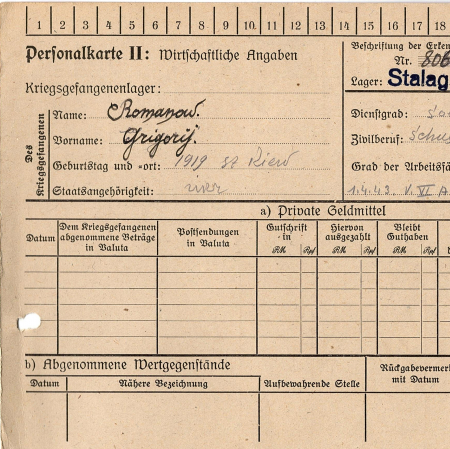 1 2 3 4 5 6 7 8 9 10 11 12 13 14 15 16 17 18
Personalkarte II: Wirtschaftliche Angaben
Beschriftung der Erken
Nr. 806
Lager: Stalag
Kriegsgefangenenlager:
Des Kriegsgefangenen
Name: Romanow.
Vorname: Grigorij.
Geburtstag und -ort: 1919 Kiew
Staatsangehörigkeit:
Dienstgrad: So
Zivilberuf: Schus
Grad der Arbeitsfä
1.4.43. V. VI A
a) Private Geldmittel
Datum
Dem Kriegsgefangenen abgenommene Beträge in Valuta
Postsendungen in Valuta
Gutschrift in
RM Rpf
Hiervon ausgezahlt
RM Rpf
Bleibt Guthaben
RM Rpf
b) Abgenommene Wertgegenstände
Datum
Nähere Bezeichnung
Aufbewahrende Stelle
Rückgabevermer
mit Datum